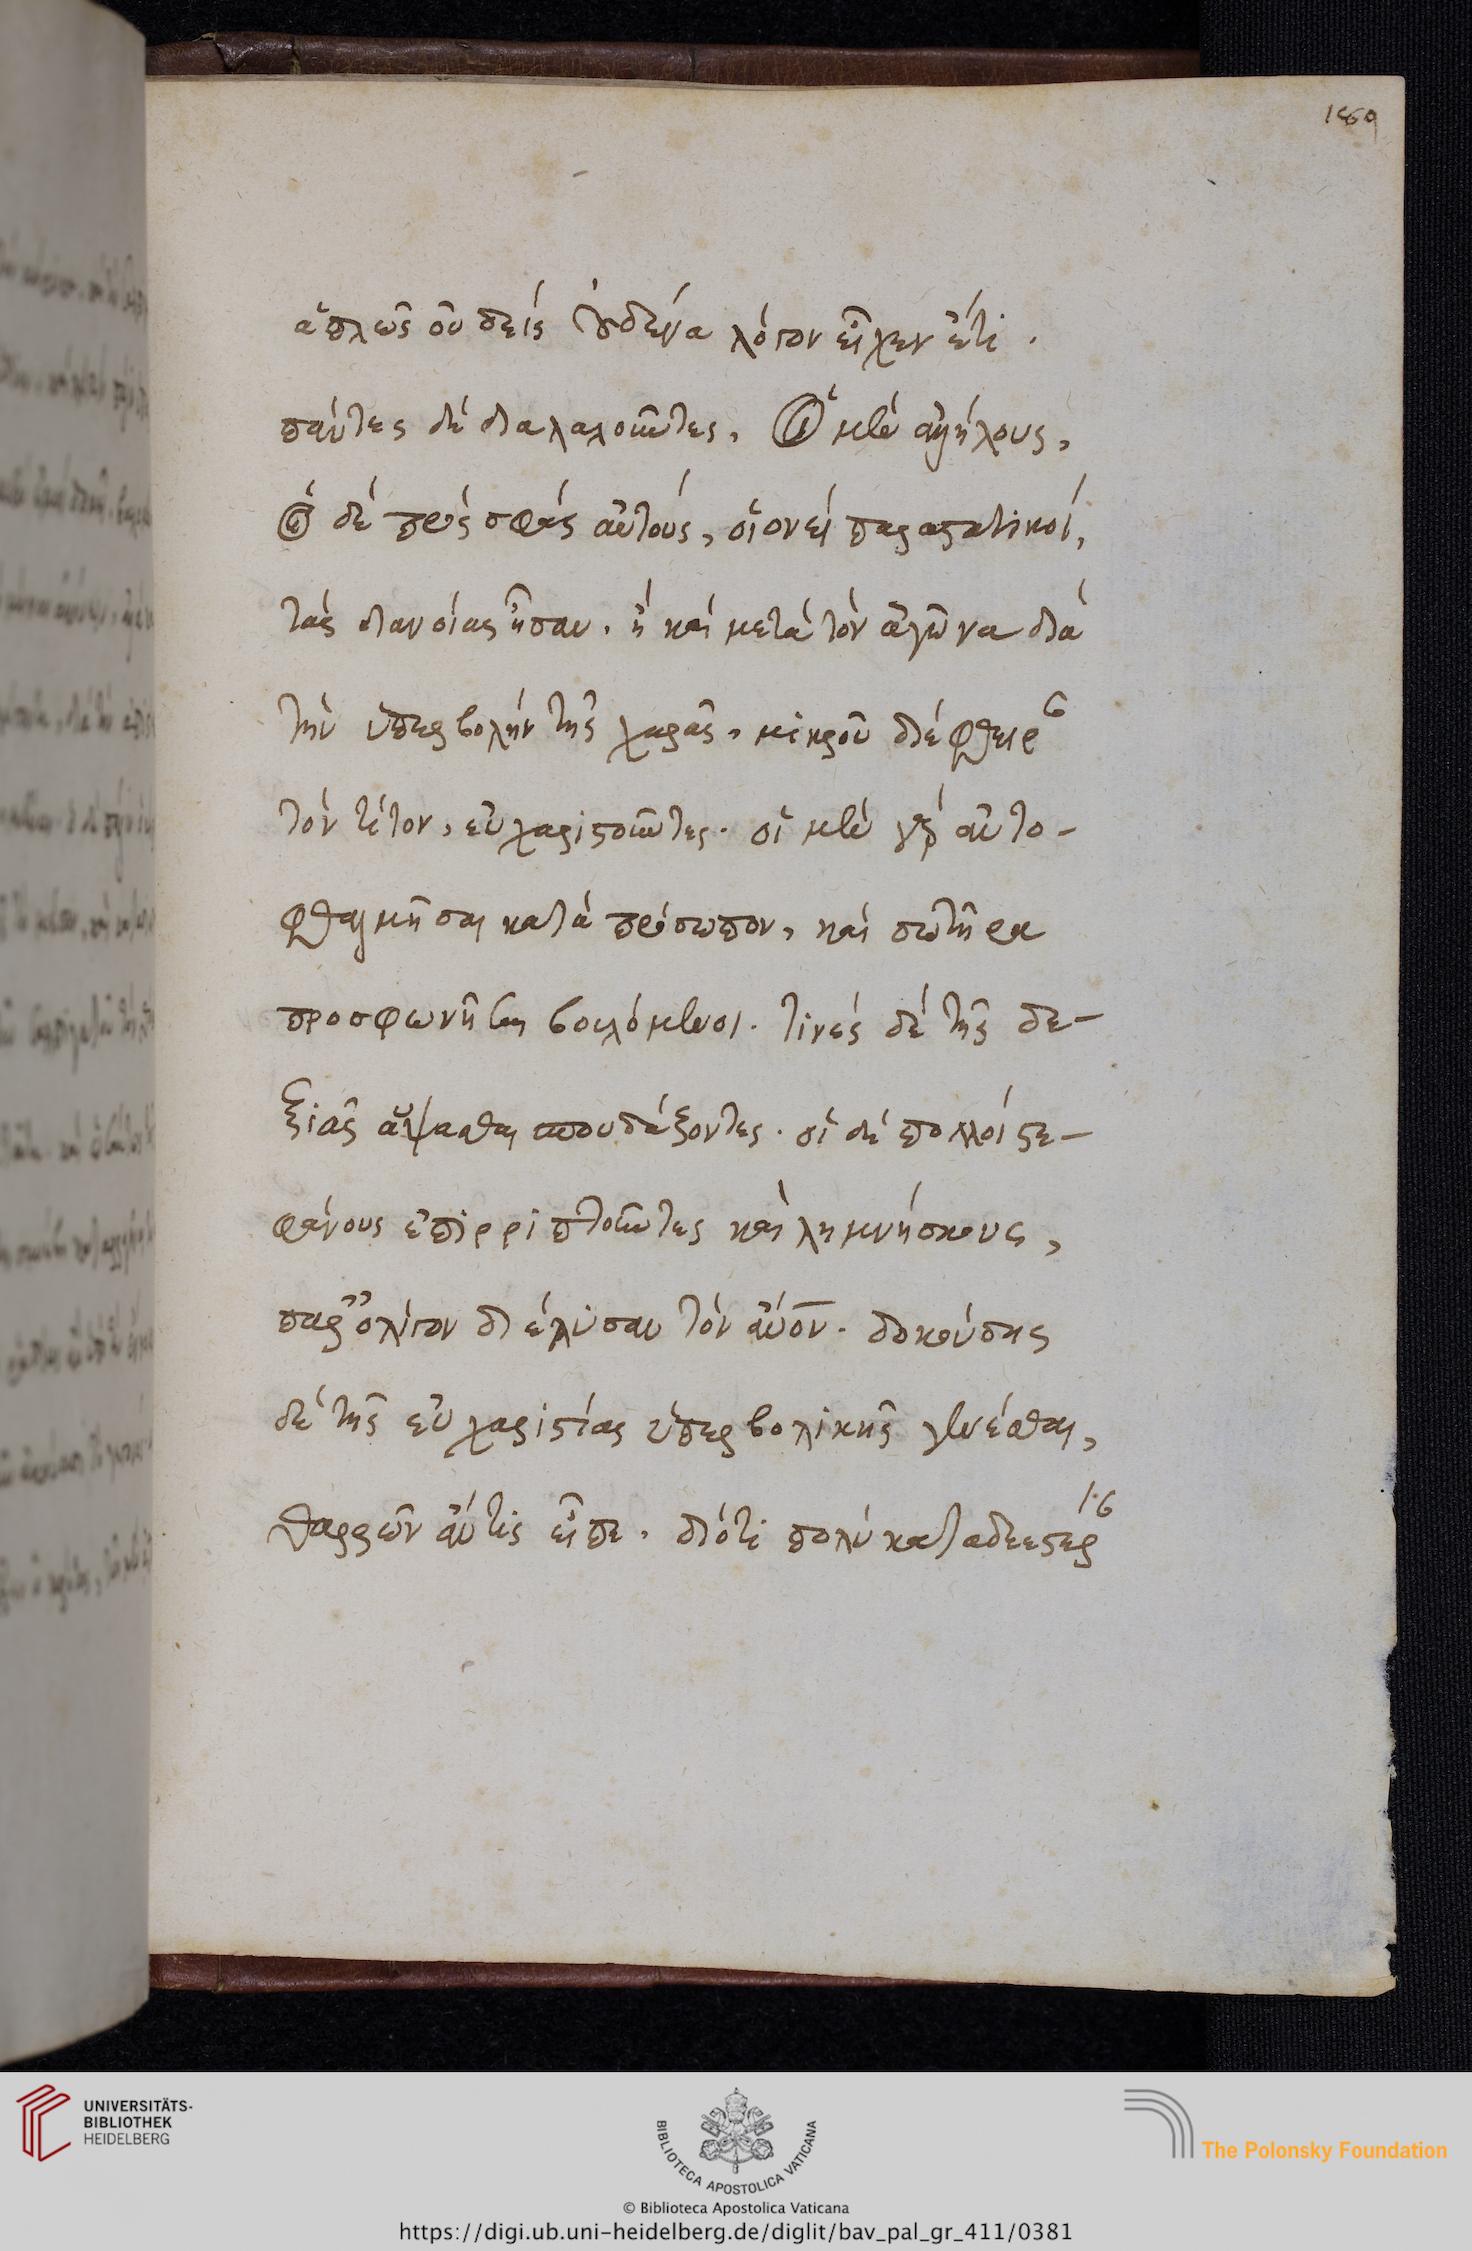 189
ἁπλῶς οὐδεὶς οὐδένα λόγον εἶχεν ἔτι.
πάντες δὲ διαλαλοῦντες, οἱ μὲν ἀλλήλους,
οἱ δὲ πρὸς σφᾶς αὐτούς, οἱονεὶ παραστατικοί,
τὰς διανοίας ἦσαν. ᾗ καὶ μετὰ τὸν ἀγῶνα διὰ
τὴν ὑπερβολὴν τῆς χαρᾶς, μικροῦ διέφθειρ
τὸν τίτον, εὐχαριστοῦντες. οἱ μὲν γὰρ ἀντο-
φθαλμῆσαι κατὰ πρόσωπον, καὶ σωτῆρα
προσφωνῆσαι βουλόμενοι. τινὲς δὲ τῆς δε-
ξιᾶς ἅψασθαι σπουδάζοντες. οἱ δὲ πολλοὶ στε-
φάνους ἐπιρριπτοῦντες καὶ λημνήσκους,
παρ' ὀλίγον διέλυσαν τὸν ἄνον. δοκούσης
δὲ τῆς εὐχαριστίας ὑπερβολικῆς γενέσθαι,
θαρρῶν ἄν τις εἶπε. διότι πολὺ καταδεεστέρ
UNIVERSITÄTS-
BIBLIOTHEK
HEIDELBERG
BIBLIOTECA APOSTOLICA VATICANA
© Biblioteca Apostolica Vaticana
The Polonsky Foundation
https://digi.ub.uni-heidelberg.de/diglit/bav_pal_gr_411/0381